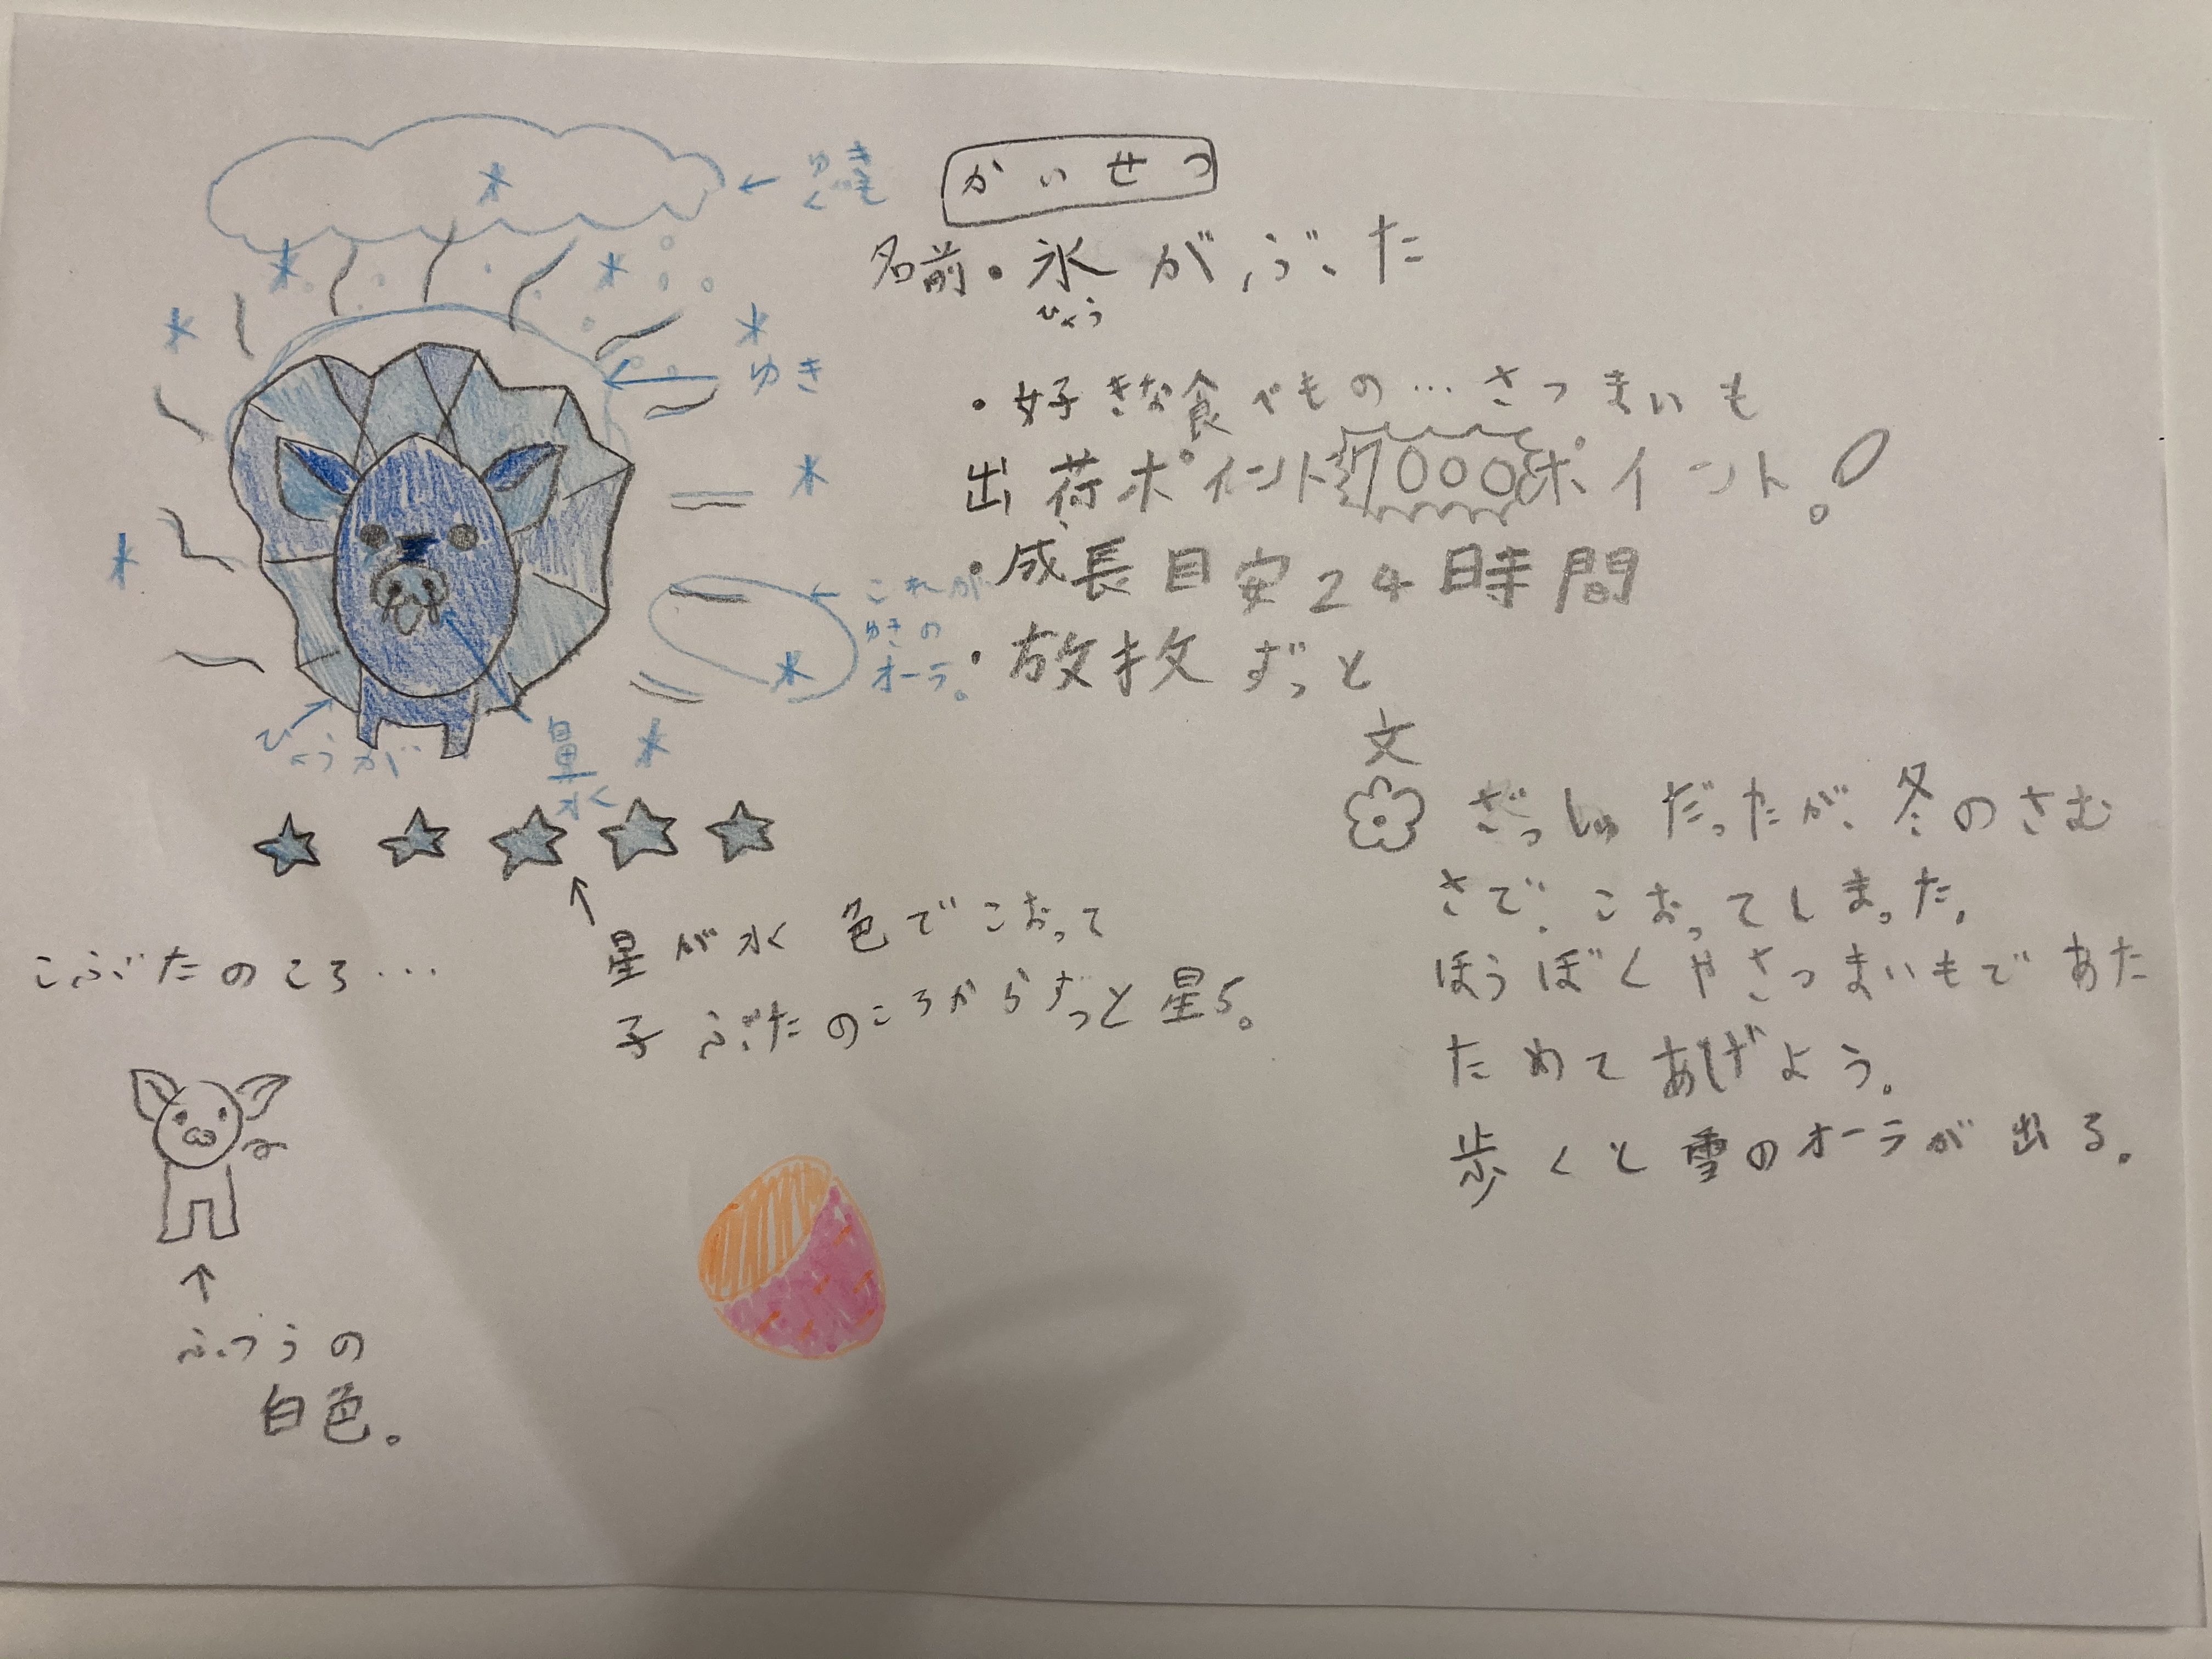 かいせつ
名前・氷がぶた
ひょう
・好きな食べもの…さつまいも
出荷ポイント7000ポイント。
・成長目安24時間
・放牧ずっと
文
ざっしゅだったが、冬のさむ
さで、こおってしまった。
ほうぼくやさつまいもであた
ためてあげよう。
歩くと雪のオーラが出る。
ゆき
ぐも
ゆき
これが
ゆきの
オーラ。
ひょうが
鼻
水
星が水色でこおって
子ぶたのころからずっと星5。
こぶたのころ…
ふつうの
白色。